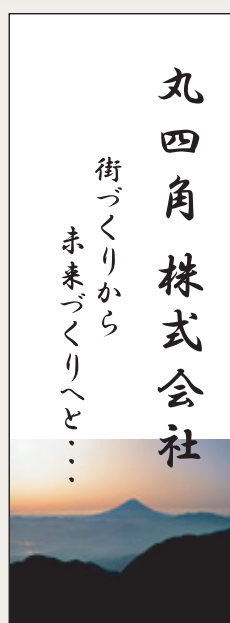 丸四角 株式会社
街づくりから
未来づくりへと・・・